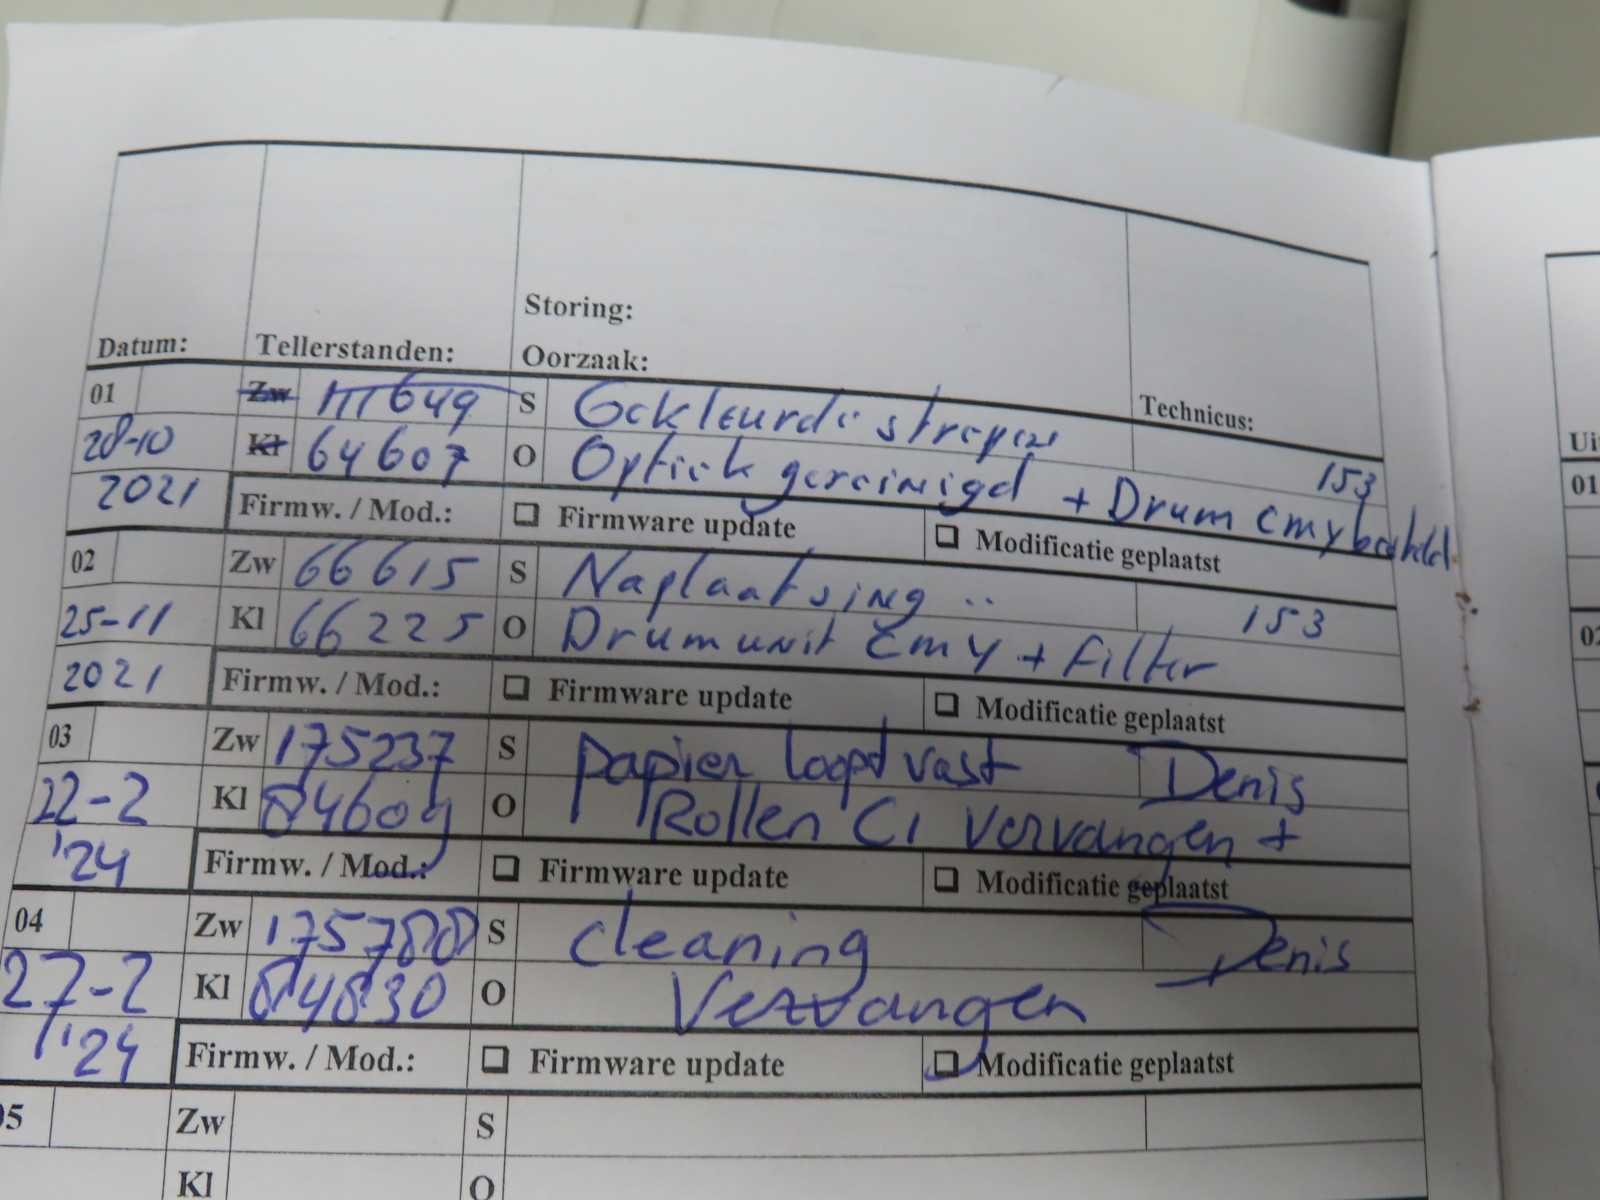 Storing:
Datum: Tellerstanden: Oorzaak:
Technicus:
01 Zw 111649 S Gekleurde strepen
28-10 Kl 64607 O Optiek gereinigd + Drum cmy besteld 153
2021 Firmw. / Mod.: ❑ Firmware update ❑ Modificatie geplaatst
02 Zw 66615 S Naplaatsing .. 153
25-11 Kl 66225 O Drumunit cmy + filter
2021 Firmw. / Mod.: ❑ Firmware update ❑ Modificatie geplaatst
03 Zw 175237 S papier loopt vast Denis
22-2 Kl 84609 O Rollen C1 vervangen +
'24 Firmw. / Mod.: ❑ Firmware update ❑ Modificatie geplaatst
04 Zw 175788 S cleaning Denis
27-2 Kl 84830 O Vervangen
'24 Firmw. / Mod.: ❑ Firmware update ❑ Modificatie geplaatst
05 Zw S
Kl O
01